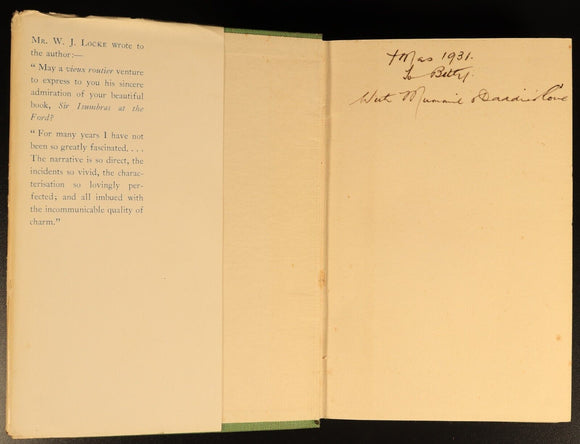 Mr. W. J. Locke wrote to
the author:—
“May a vieux routier venture
to express to you his sincere
admiration of your beautiful
book, Sir Isumbras at the
Ford?
“For many years I have not
been so greatly fascinated. . . .
The narrative is so direct, the
incidents so vivid, the charac-
terisation so lovingly per-
fected; and all imbued with
the incommunicable quality of
charm.”
Xmas 1931.
To Betty.
With Mummie & Daddie's love